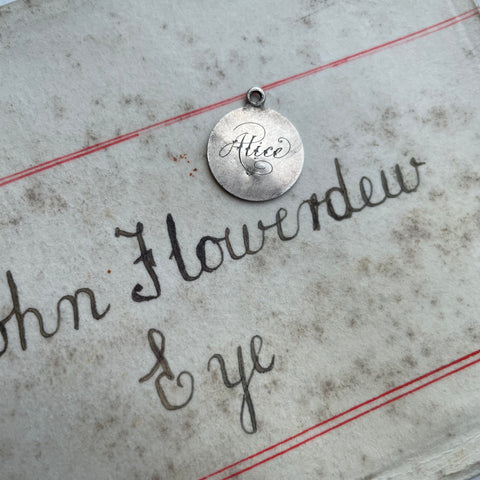 Alice
ohn Flowerdew
Eye